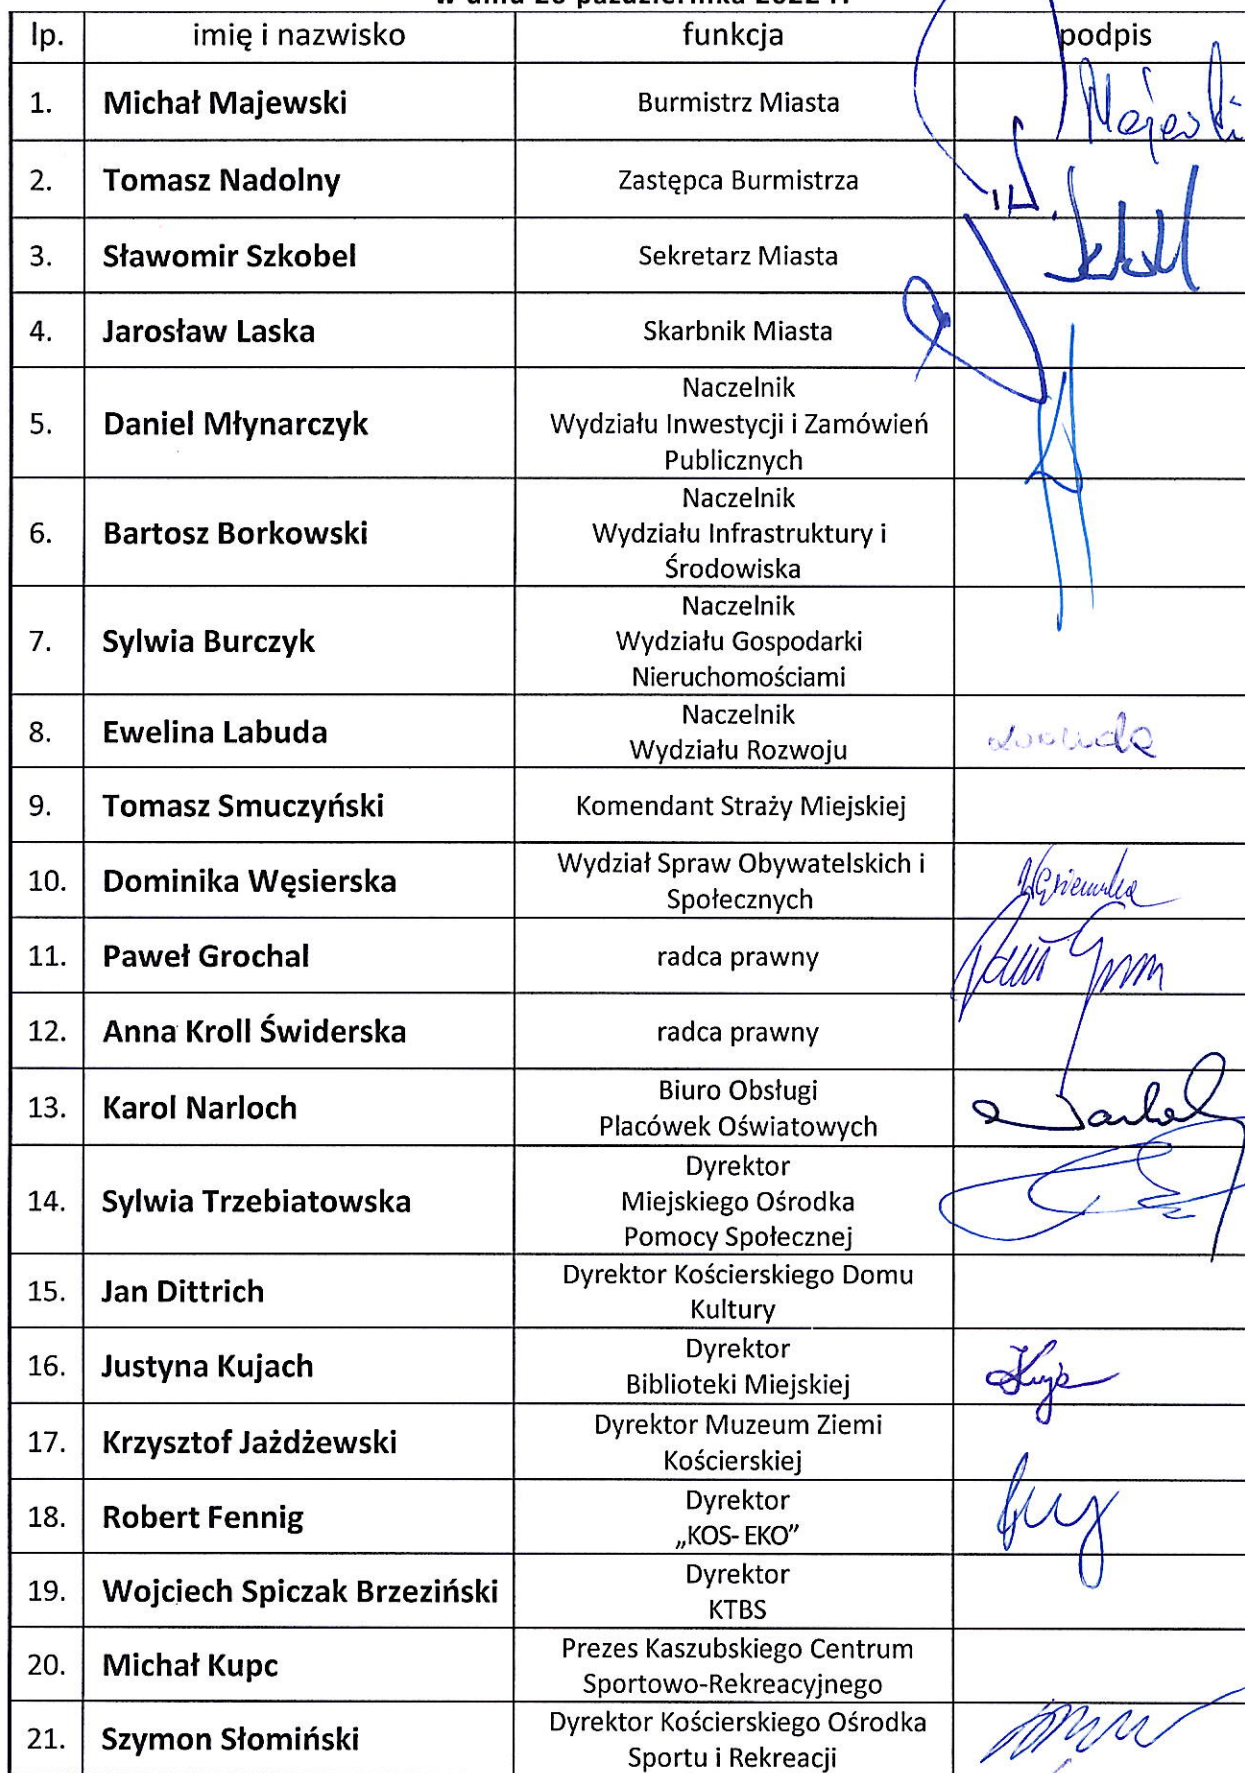 w dniu 26 października 2022 r.
lp. imię i nazwisko funkcja podpis
1. Michał Majewski Burmistrz Miasta Majewski
2. Tomasz Nadolny Zastępca Burmistrza
3. Sławomir Szkobel Sekretarz Miasta
4. Jarosław Laska Skarbnik Miasta
Naczelnik
5. Daniel Młynarczyk Wydziału Inwestycji i Zamówień
Publicznych
Naczelnik
6. Bartosz Borkowski Wydziału Infrastruktury i
Środowiska
Naczelnik
7. Sylwia Burczyk Wydziału Gospodarki
Nieruchomościami
8. Ewelina Labuda Naczelnik
Wydziału Rozwoju
9. Tomasz Smuczyński Komendant Straży Miejskiej
10. Dominika Węsierska Wydział Spraw Obywatelskich i
Społecznych
11. Paweł Grochal radca prawny
12. Anna Kroll Świderska radca prawny
13. Karol Narloch Biuro Obsługi
Placówek Oświatowych
Dyrektor
14. Sylwia Trzebiatowska Miejskiego Ośrodka
Pomocy Społecznej
15. Jan Dittrich Dyrektor Kościerskiego Domu
Kultury
16. Justyna Kujach Dyrektor
Biblioteki Miejskiej
17. Krzysztof Jażdżewski Dyrektor Muzeum Ziemi
Kościerskiej
18. Robert Fennig Dyrektor
„KOS- EKO”
19. Wojciech Spiczak Brzeziński Dyrektor
KTBS
20. Michał Kupc Prezes Kaszubskiego Centrum
Sportowo-Rekreacyjnego
21. Szymon Słomiński Dyrektor Kościerskiego Ośrodka
Sportu i Rekreacji